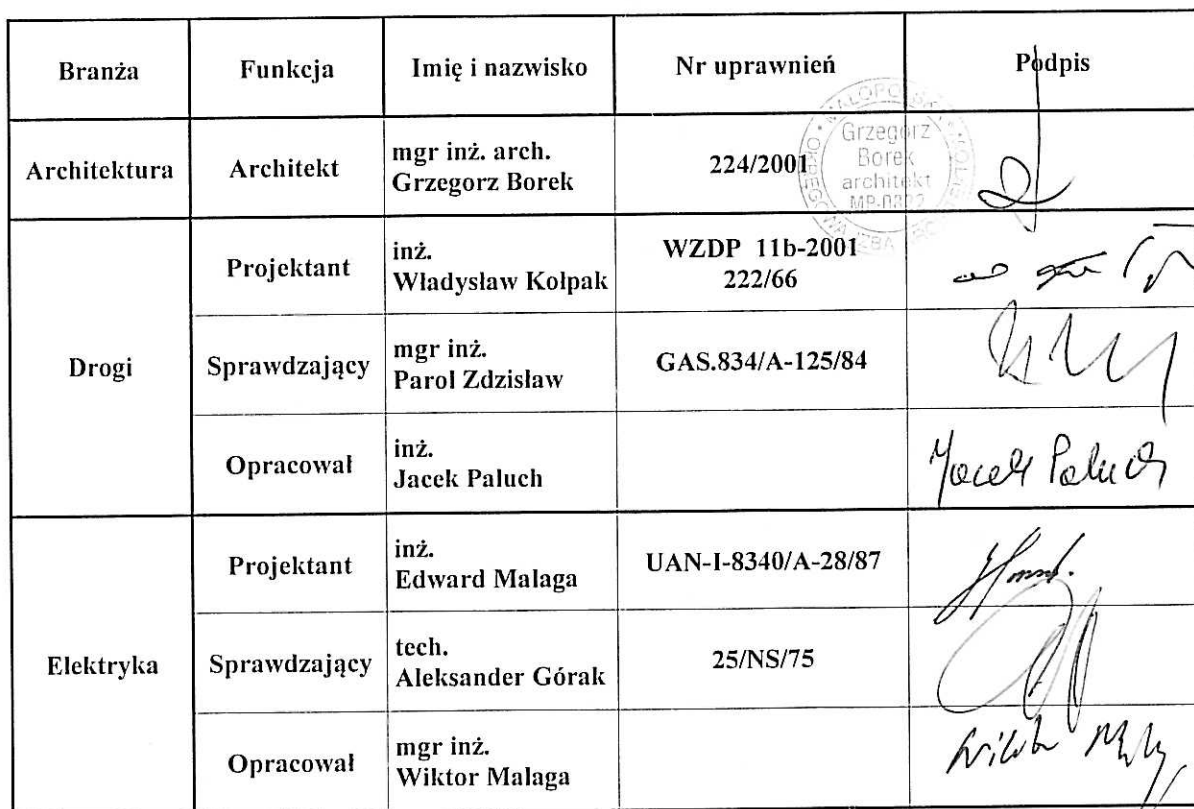 Branża Funkcja Imię i nazwisko Nr uprawnień Podpis
Architektura Architekt mgr inż. arch.
Grzegorz Borek 224/2001
Grzegorz
Borek
architekt
MP-0322
Drogi
Projektant inż.
Władysław Kołpak WZDP 11b-2001
222/66
Sprawdzający mgr inż.
Parol Zdzisław GAS.834/A-125/84
Opracował inż.
Jacek Paluch
Jacek Paluch
Elektryka
Projektant inż.
Edward Malaga UAN-I-8340/A-28/87
Sprawdzający tech.
Aleksander Górak 25/NS/75
Opracował mgr inż.
Wiktor Malaga